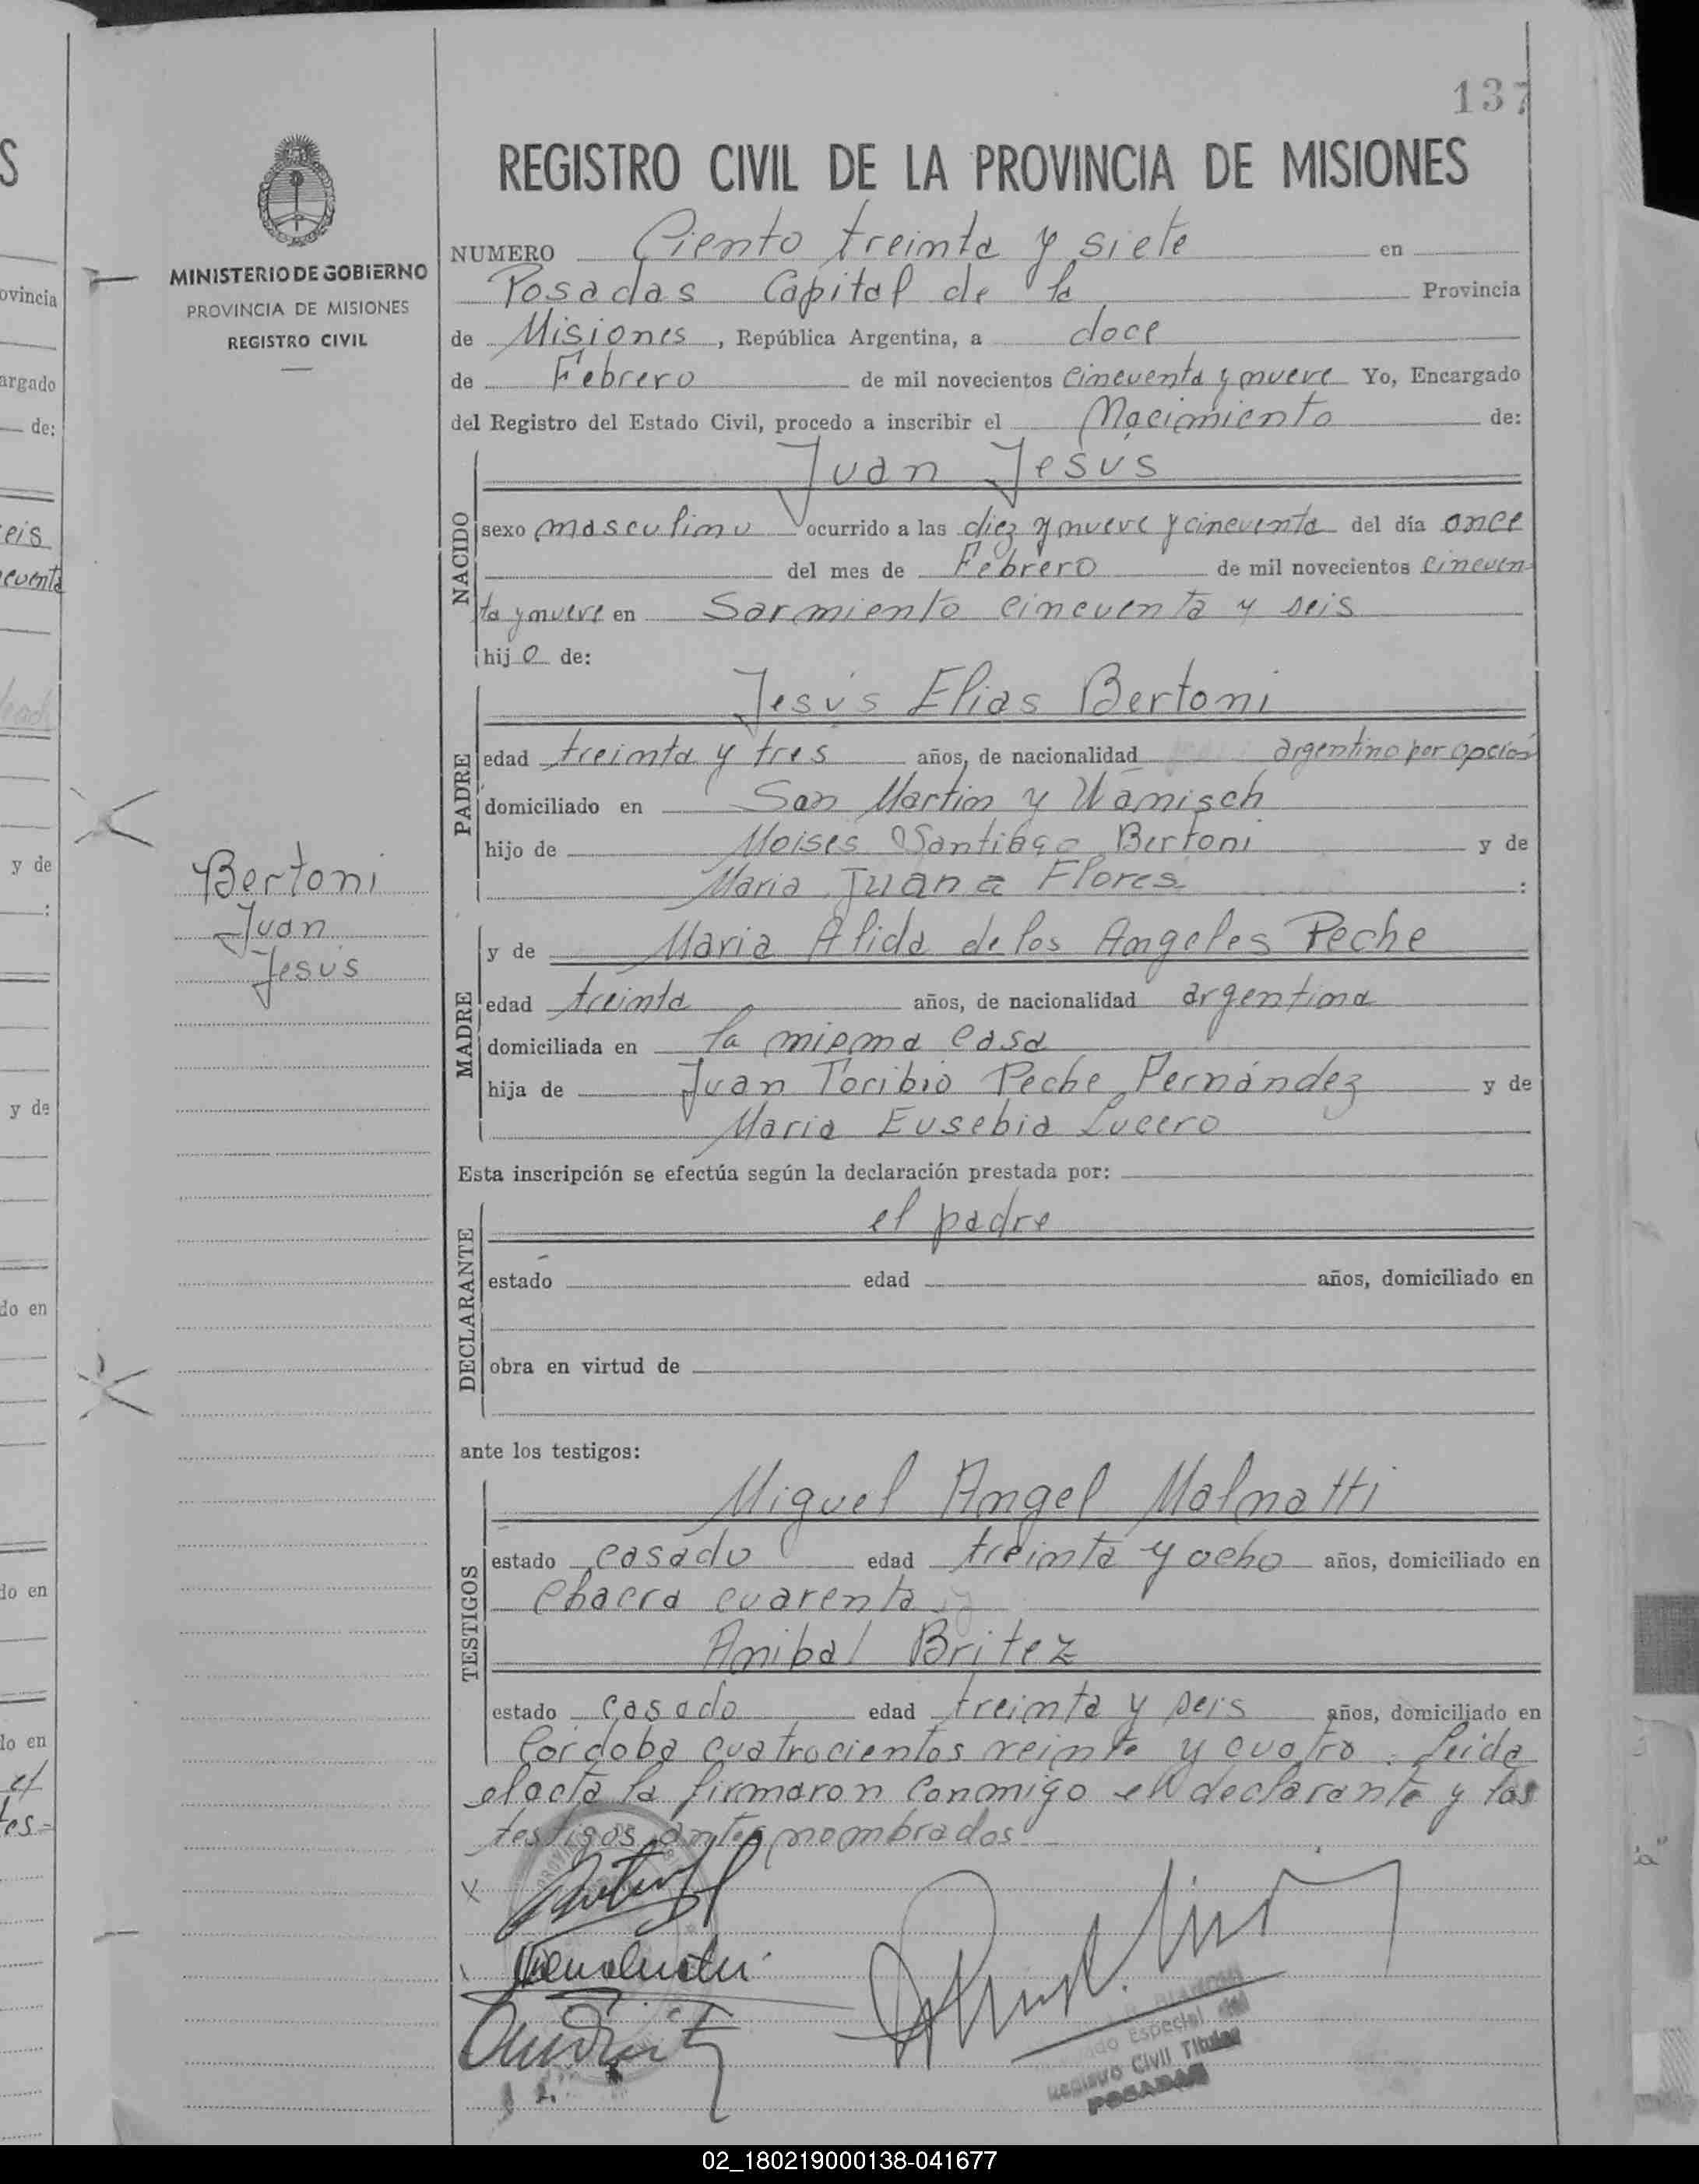 137
REGISTRO CIVIL DE LA PROVINCIA DE MISIONES
MINISTERIO DE GOBIERNO
PROVINCIA DE MISIONES
REGISTRO CIVIL
NUMERO Ciento treinta y siete en
Posadas Capital de la Provincia
de Misiones, República Argentina, a doce
de Febrero de mil novecientos cincuenta y nueve Yo, Encargado
del Registro del Estado Civil, procedo a inscribir el Nacimiento de:
NACIDO
Juan Jesus
sexo masculino ocurrido a las diez y nueve y cincuenta del día once
del mes de Febrero de mil novecientos cincuen
ta y nueve en Sarmiento cincuenta y seis
hijo de:
PADRE
Jesús Elias Bertoni
edad treinta y tres años, de nacionalidad argentino por opción
domiciliado en San Martin y Wanisch
hijo de Moises Santiago Bertoni y de
Maria Juana Flores :
Bertoni
Juan
Jesus
MADRE
y de Maria Alida de los Angeles Peche
edad treinta años, de nacionalidad argentina
domiciliada en la misma casa
hija de Juan Toribio Peche Fernández y de
Maria Eusebia Lucero
Esta inscripción se efectúa según la declaración prestada por:
DECLARANTE
el padre
estado edad años, domiciliado en
obra en virtud de
ante los testigos:
TESTIGOS
Miguel Angel Malnatti
estado casado edad treinta y ocho años, domiciliado en
Chacra cuarenta
Anibal Britez
estado casado edad treinta y seis años, domiciliado en
Cordoba cuatrocientos veinte y cuatro. Leida
el acta la firmaron conmigo el declarante y los
testigos antes nombrados.
Especial del
Registro Civil Titular
POSADAS
02_180219000138-041677